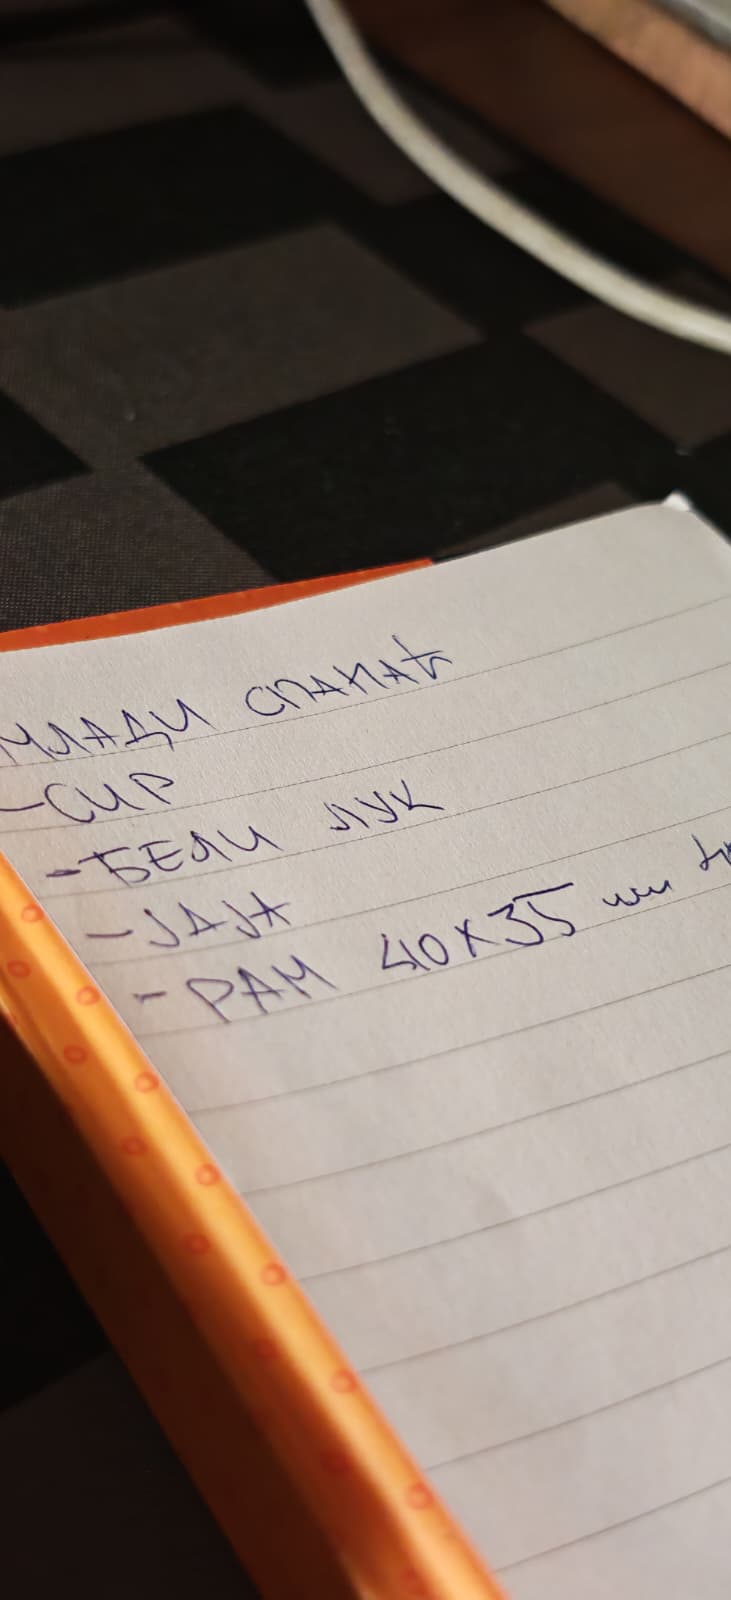 МЛАДИ СПАНАЋ
-СИР
-БЕЛИ ЛУК
-ЈАЈА
-РАМ 40X35